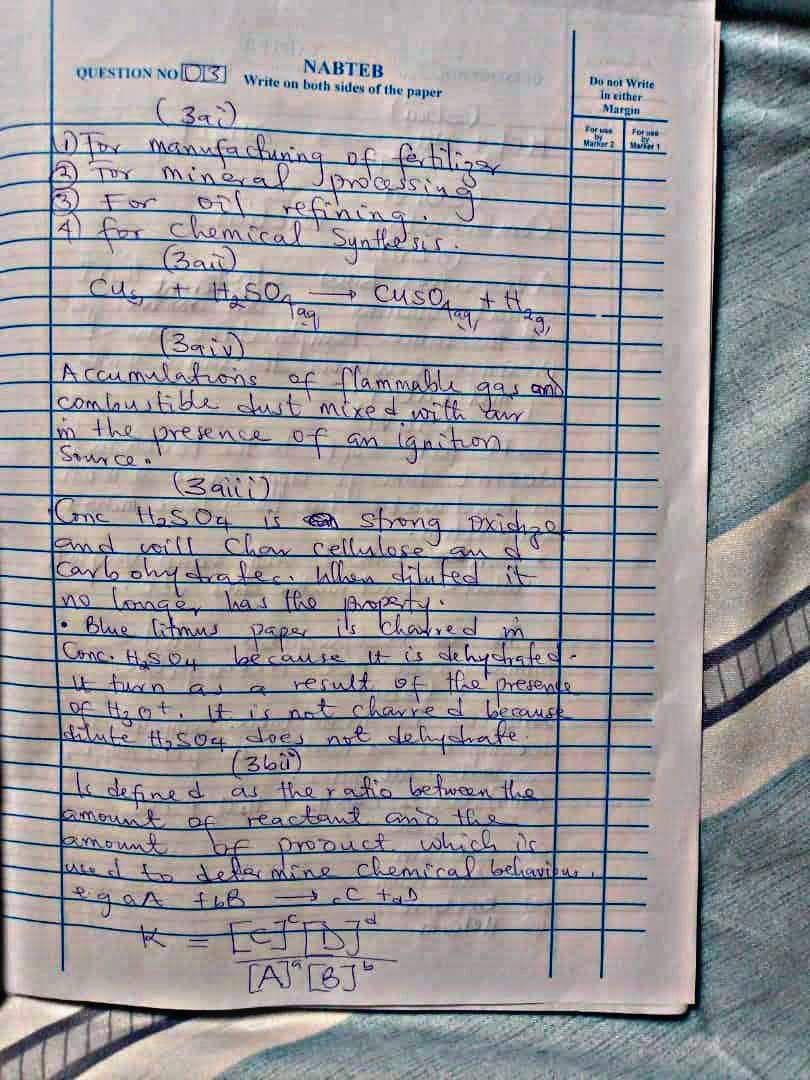 QUESTION NO 03
NABTEB
Write on both sides of the paper
Do not Write
in either
Margin
For use
by
Marker 2
For use
by
Marker 1
(3ai)
1) For manufacturing of fertilizer
2) For mineral processing
3) For oil refining.
4) for Chemical Synthesis.
(3aii)
Cu(s) + H₂SO₄(aq) → CuSO₄(aq) + H₂(g)
(3aiv)
Accumulations of flammable gas and
combustible dust mixed with air
in the presence of an ignition
Source.
(3aiii)
Conc H₂SO₄ is strong oxidizer
and will Char cellulose and
Carbohydrates. When diluted it
no longer has the property.
• Blue litmus paper is charred in
Conc. H₂SO₄ because it is dehydrated.
It turn as a result of the presence
of H₃O⁺. It is not charred because
dilute H₂SO₄ does not dehydrate.
(3bii)
Is defined as the ratio between the
amount of reactant and the
amount of product which is
used to determine chemical behaviour.
e.g aA + bB → cC + dD
K = [C]ᶜ[D]ᵈ
[A]ᵃ[B]ᵇ